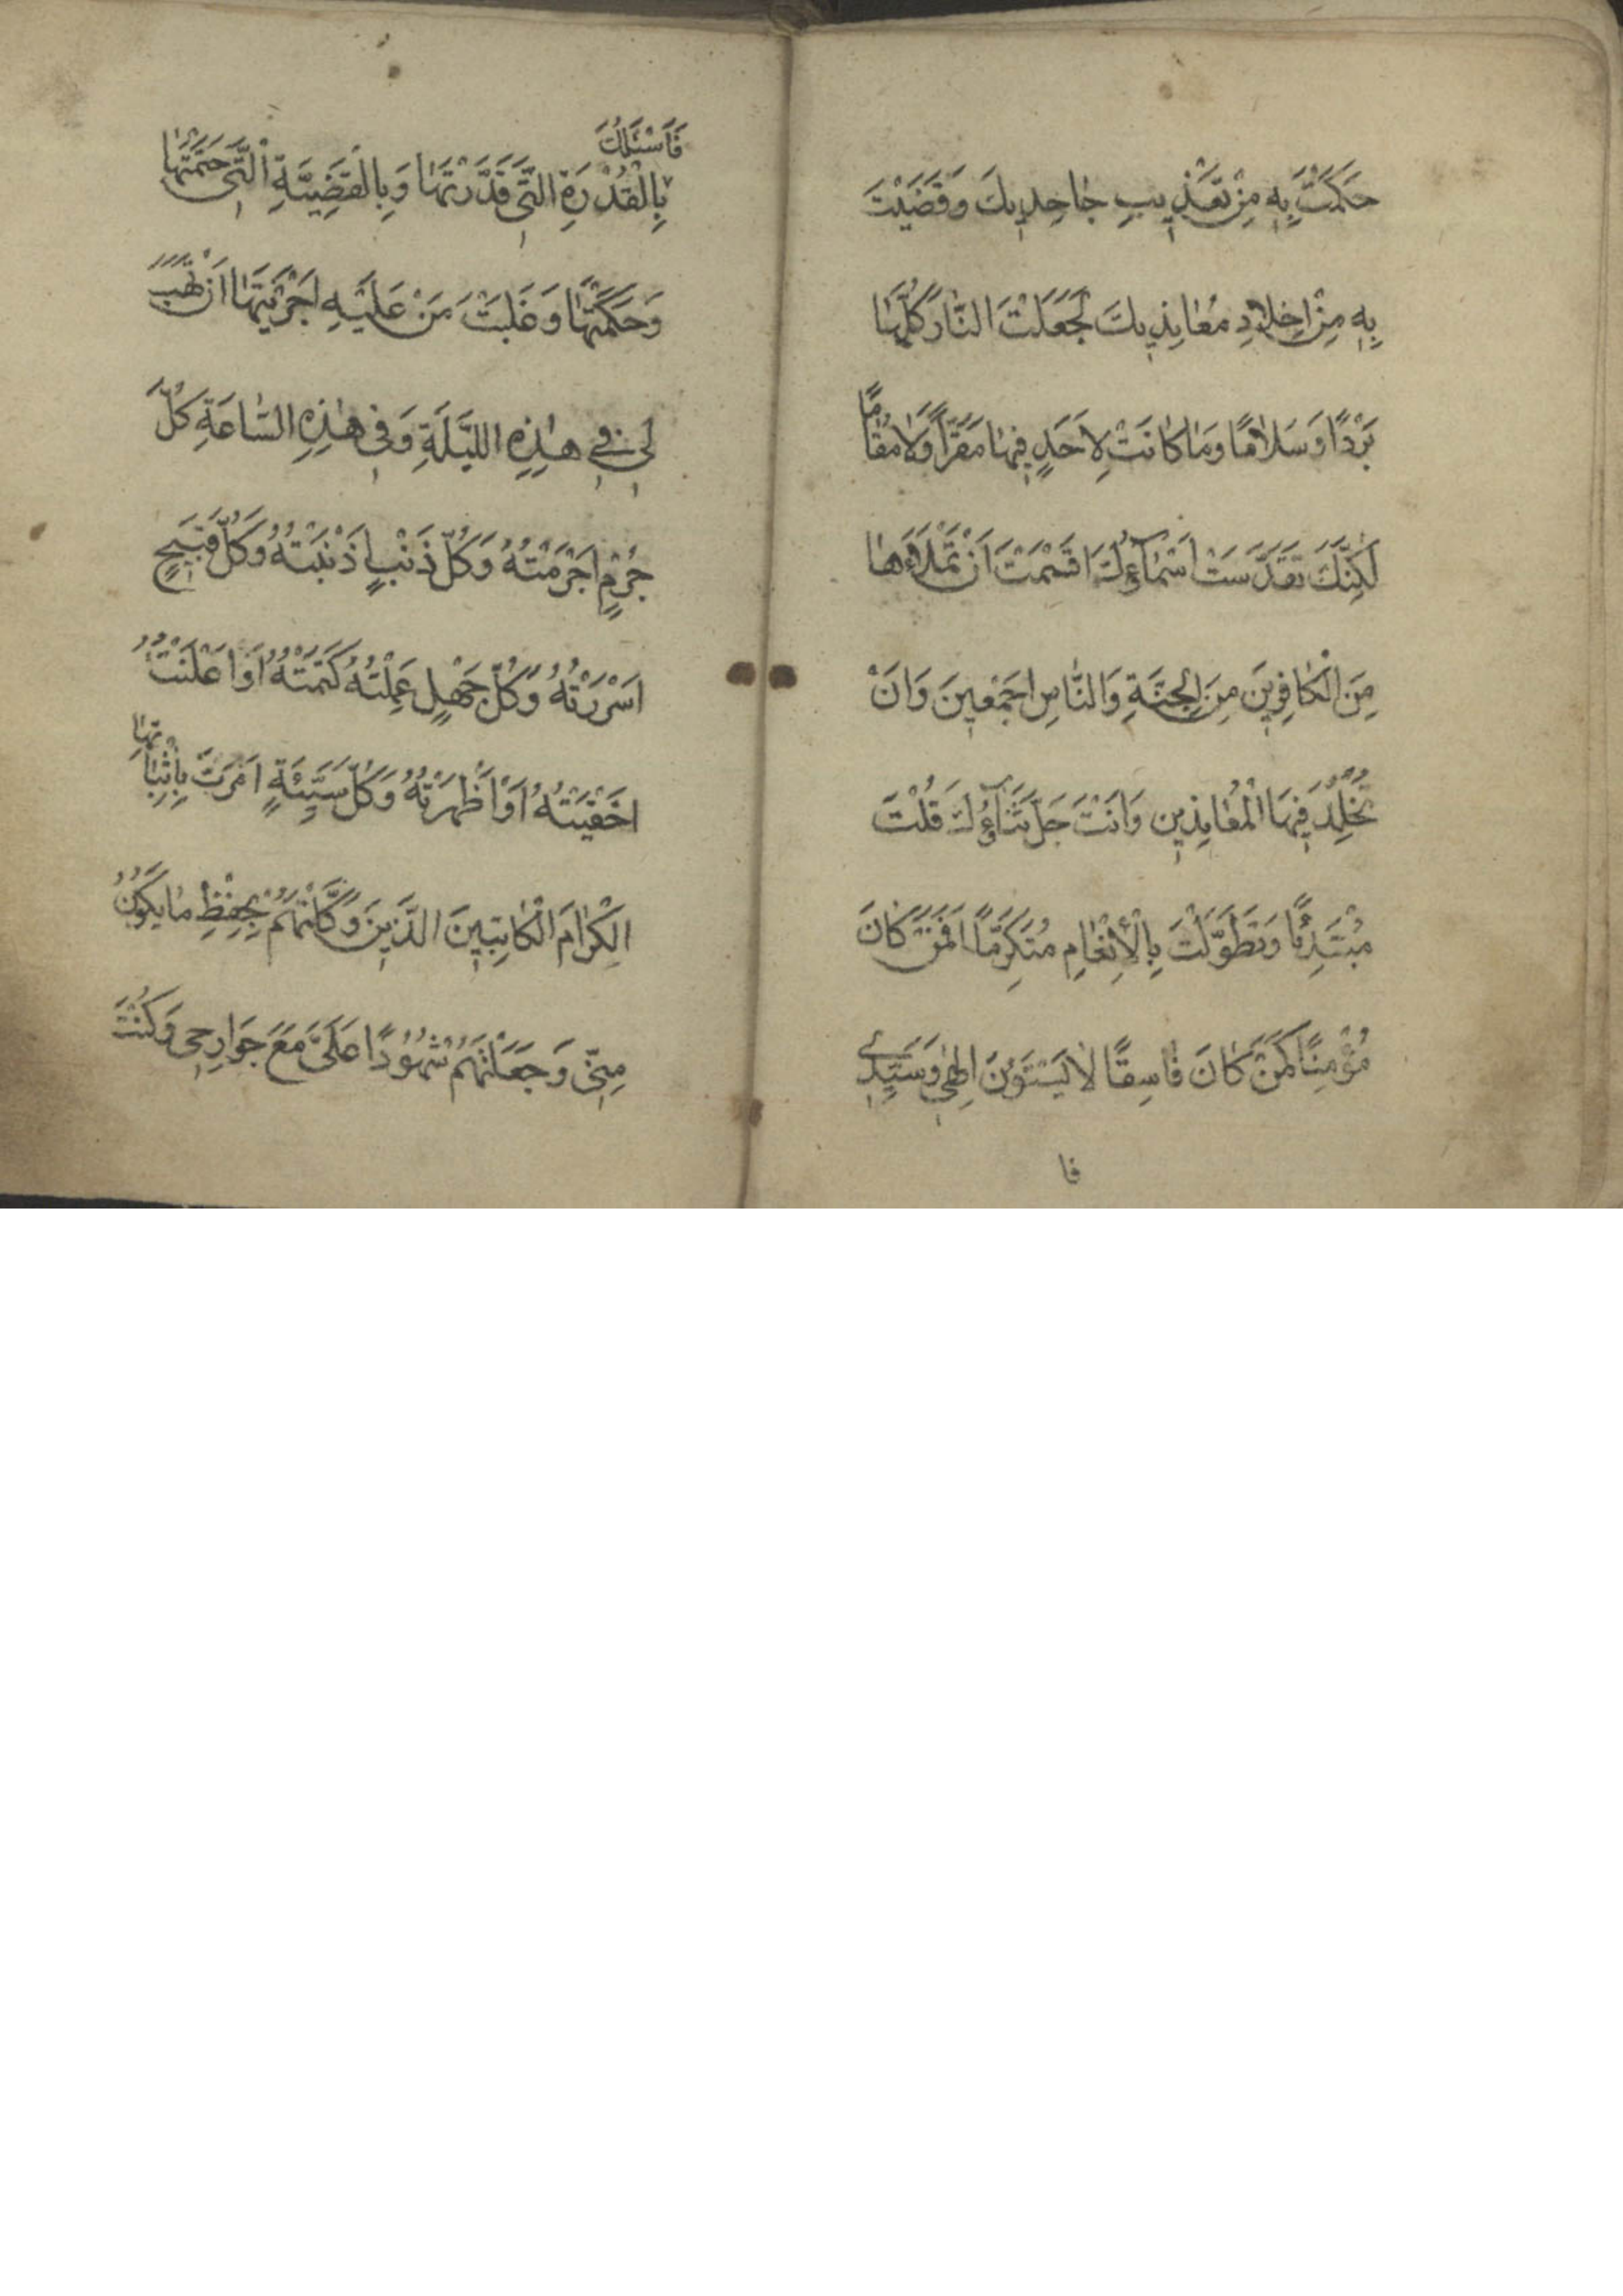 حَكَمْتَ بِهِ مِنْ تَعْذِيبِ جَاحِدِيكَ وَقَضَيْتَ
بِهِ مِنْ اِخْلَادِ مُعَانِدِيكَ لَجَعَلْتَ النَّارَ كُلَّهَا
بَرْدًا وَسَلَامًا وَمَا كَانَتْ لِاَحَدٍ فِيهَا مَقَرًّا وَلَا مُقَامًا
لَكِنَّكَ تَقَدَّسَتْ اَسْمَآؤُكَ اَقْسَمْتَ اَنْ تَمْلَاَهَا
مِنَ الْكَافِرِينَ مِنَ الْجِنَّةِ وَالنَّاسِ اَجْمَعِينَ وَاَنْ
تُخَلِّدَ فِيهَا الْمُعَانِدِينَ وَاَنْتَ جَلَّ ثَنَآؤُكَ قُلْتَ
مُبْتَدِئًا وَتَطَوَّلْتَ بِالْاِنْعَامِ مُتَكَرِّمًا اَفَمَنْ كَانَ
مُؤْمِنًا كَمَنْ كَانَ فَاسِقًا لَا يَسْتَوُنَ اِلٰهِي وَسَيِّدِي
فا
فَاَسْئَلُكَ
بِالْقُدْرَةِ الَّتِي قَدَّرْتَهَا وَبِالْقَضِيَّةِ الَّتِي حَتَمْتَهَا
وَحَكَمْتَهَا وَغَلَبْتَ مَنْ عَلَيْهِ اَجْرَيْتَهَا اَنْ تَهَبَ
لِي فِي هٰذِهِ اللَّيْلَةِ وَفِي هٰذِهِ السَّاعَةِ كُلَّ
جُرْمٍ اَجْرَمْتُهُ وَكُلَّ ذَنْبٍ اَذْنَبْتُهُ وَكُلَّ قَبِيحٍ
اَسْرَرْتُهُ وَكُلَّ جَهْلٍ عَمِلْتُهُ كَتَمْتُهُ اَوْ اَعْلَنْتُهُ
اَخْفَيْتُهُ اَوْ اَظْهَرْتُهُ وَكُلَّ سَيِّئَةٍ اَمَرْتَ بِاِثْبَاتِهَا
الْكِرَامَ الْكَاتِبِينَ الَّذِينَ وَكَّلْتَهُمْ بِحِفْظِ مَا يَكُونُ
مِنِّي وَجَعَلْتَهُمْ شُهُودًا عَلَيَّ مَعَ جَوَارِحِي وَكُنْتَ